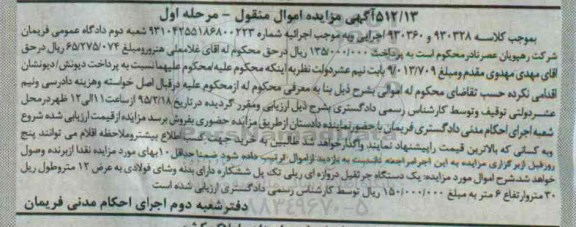 ۵۱۲/۱۳ آگهی مزایده اموال منقول - مرحله اول
بموجب کلاسه ۹۳۰۳۲۸ و ۹۳۰۳۶۰ اجرایی وبه موجب اجرائیه شماره ۹۳۱۰۴۲۵۵۱۸۶۸۰۰۲۲۳ شعبه دوم دادگاه عمومی فریمان
شرکت رهپویان عصرنادرمحکوم است به پرداخت ۱۳۵/۰۰۰/۰۰۰ ریال درحق محکوم له آقای غلامعلی هنرورومبلغ ۶۵/۲۷۵/۰۷۴ ریال درحق
آقای مهدی مهدوی مقدم ومبلغ ۹/۰۱۳/۷۰۹ بابت نیم عشردولت نظر به اینکه محکوم علیه/محکوم علیهمانسبت به پرداخت دیونش/دیونشان
اقدامی نکرده حسب تقاضای محکوم له اموالی بشرح ذیل بنا به معرفی محکوم له ازمحکوم علیه درقبال اصل خواسته وهزینه دادرسی ونیم
عشردولتی توقیف وتوسط کارشناس رسمی دادگستری بشرح ذیل ارزیابی ومقرر گردیده درتاریخ ۹۵/۲/۱۸ ازساعت ۱۱ الی ۱۲ ظهردرمحل
شعبه اجرای احکام مدنی دادگستری فریمان باحضورنماینده دادستان ازطریق مزایده حضوری بفروش برسد مزایده ازقیمت ارزیابی شده شروع
وبه کسانی که بالاترین قیمت راپیشنهاد نمایند واگذارخواهد شد طالبین به خرید جهت کسب اطلاع بیشتروملاحظه اقلام می توانند پنج
روزقبل ازبرگزاری مزایده به این اجرامراجعه تانسبت به بازدید ازاموال ترتیب داده شود ضمنا حداقل ۱۰ بهای مورد مزایده نقدا ازبرنده وصول
خواهد شد.شرح اموال مورد مزایده: یک دستگاه جرثقیل دروازه ای ریلی تک پل شفکاره دارای بدنه وشای فولادی به عرض ۱۲ متروطول ریل
۳۰ متروارتفاع ۶ متر به مبلغ ۱۵۰/۰۰۰/۰۰۰ ریال توسط کارشناس رسمی دادگستری ارزیابی شده است
دفترشعبه دوم اجرای احکام مدنی فریمان